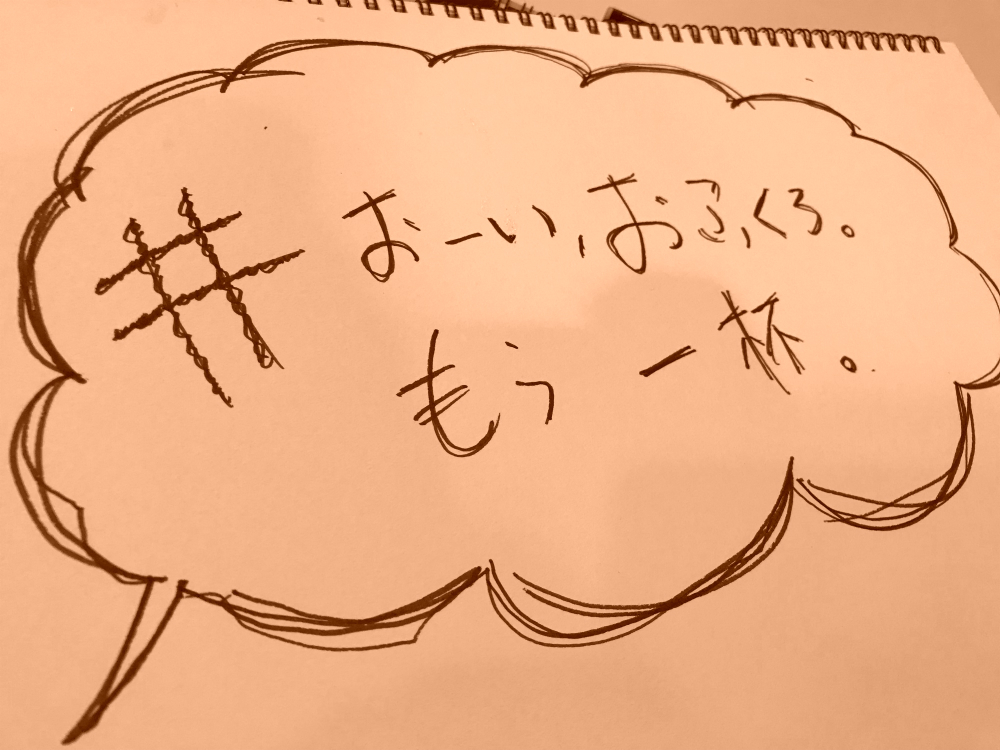 # おーい、おふくろ。
もう一杯。